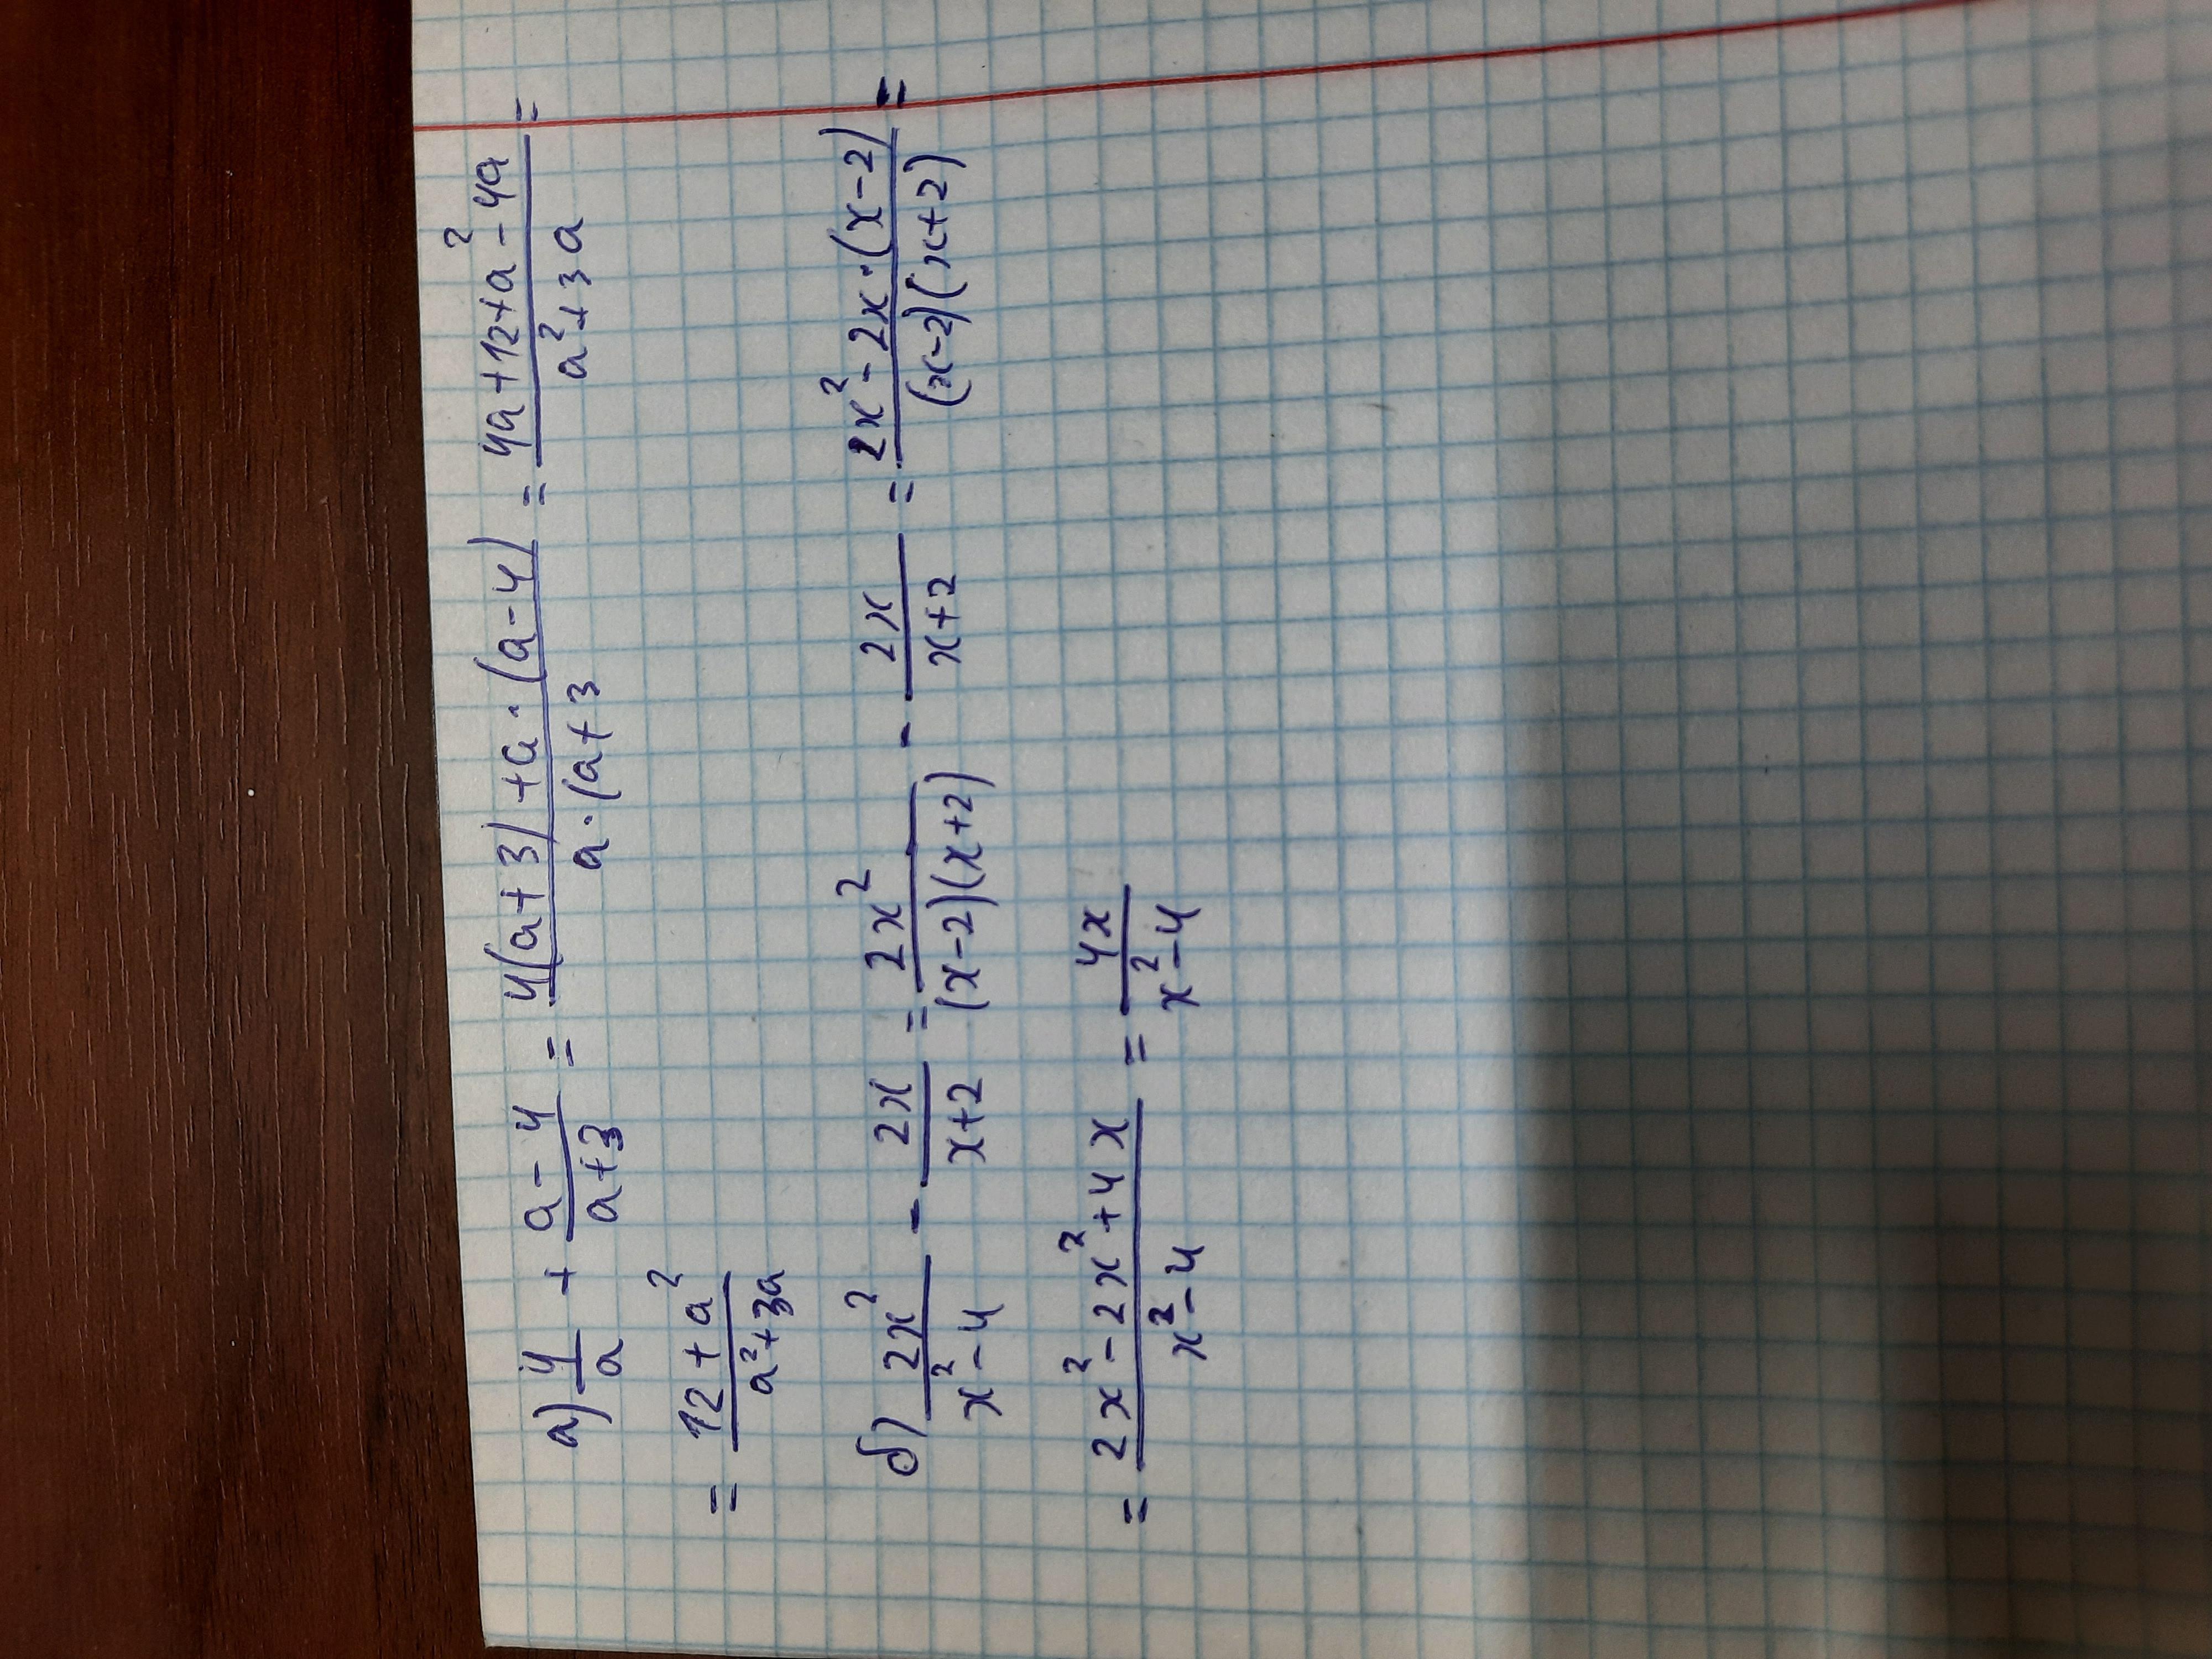 а) 4/a + (a-4)/(a+3) = (4(a+3)+a·(a-4))/(a·(a+3) = (4a+12+a²-4a)/(a²+3a) =
= (12+a²)/(a²+3a)
б) 2x²/(x²-4) - 2x/(x+2) = 2x²/((x-2)(x+2)) - 2x/(x+2) = (2x²-2x·(x-2))/((x-2)(x+2)) =
= (2x²-2x²+4x)/(x²-4) = 4x/(x²-4)